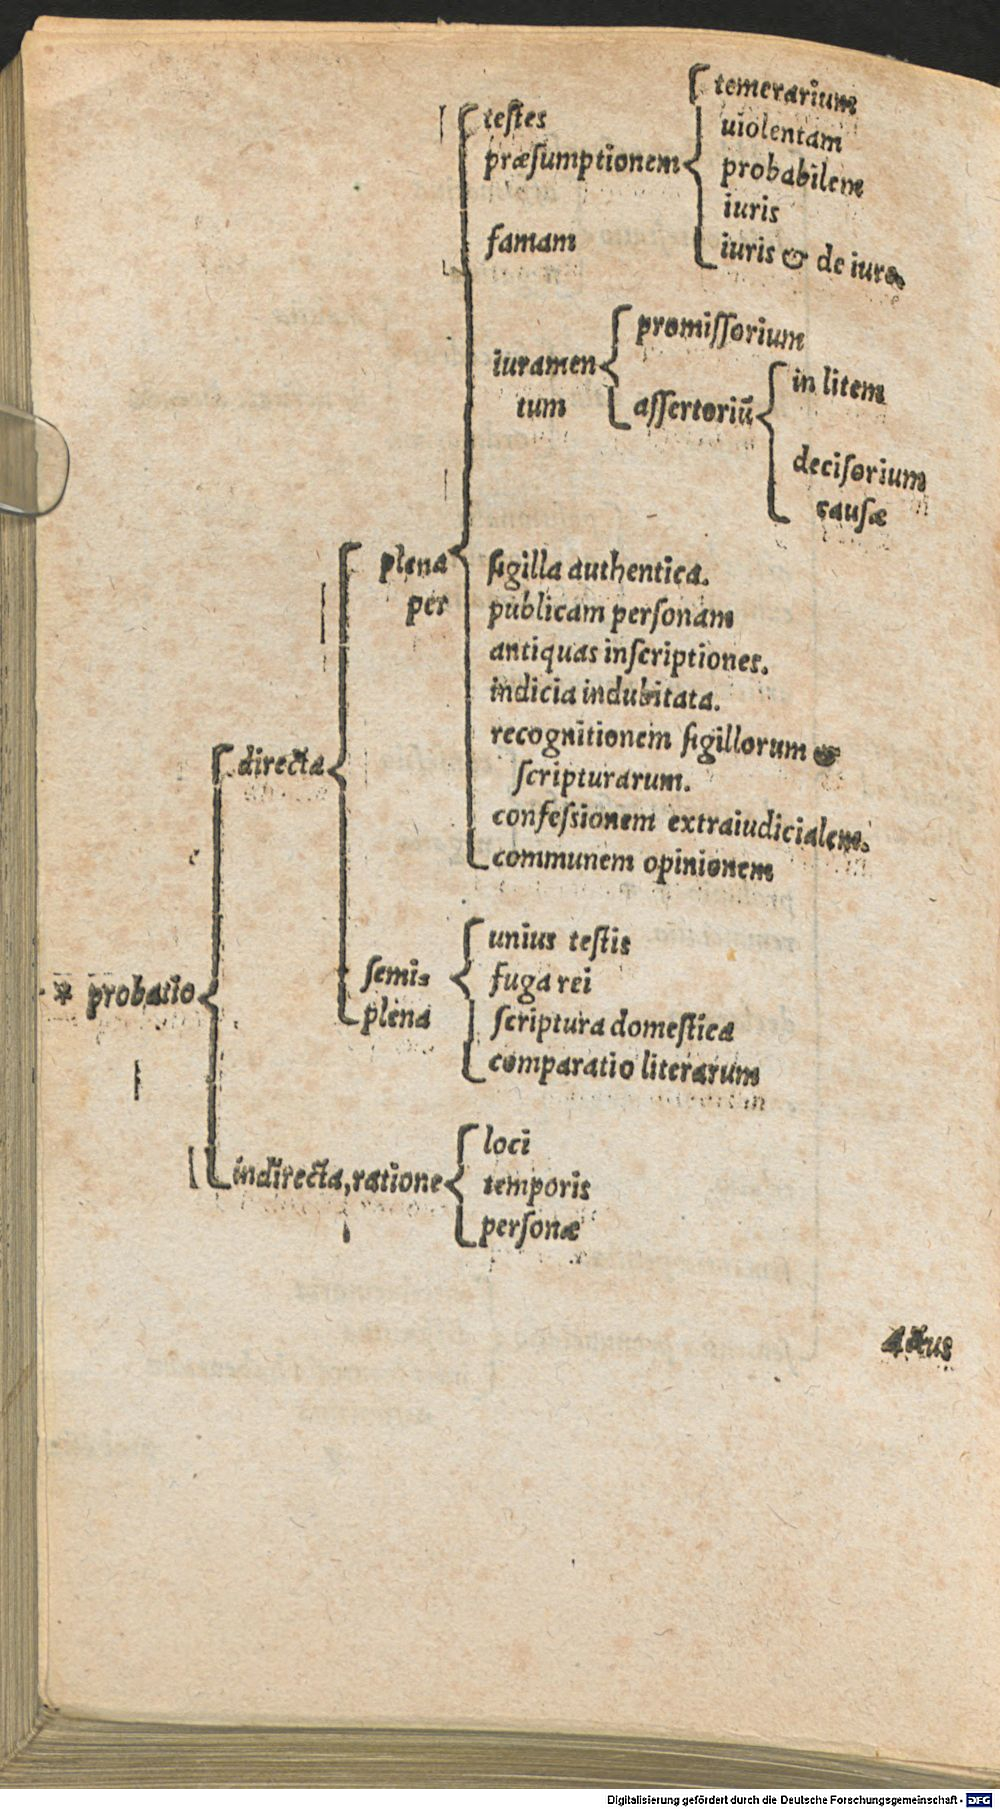 temerarium
teſtes
uiolentam
præſumptionem
probabilem
iuris
famam
iuris & de iure.
promiſſorium
iuramen
tum
aſſertoriū
in litem
deciſorium
cauſæ
plena
per
ſigilla authentica.
publicam perſonam
antiquas inſcriptiones.
indicia indubitata.
recognitionem ſigillorum &
ſcripturarum.
confeſsionem extraiudicialem.
communem opinionem
directa
unius teſtis
ſemi-
plena
fuga rei
ſcriptura domeſtica
comparatio literarum
* probatio
loci
indirecta, ratione
temporis
perſonæ
Actus
Digitalisierung gefördert durch die Deutsche Forschungsgemeinschaft - DFG